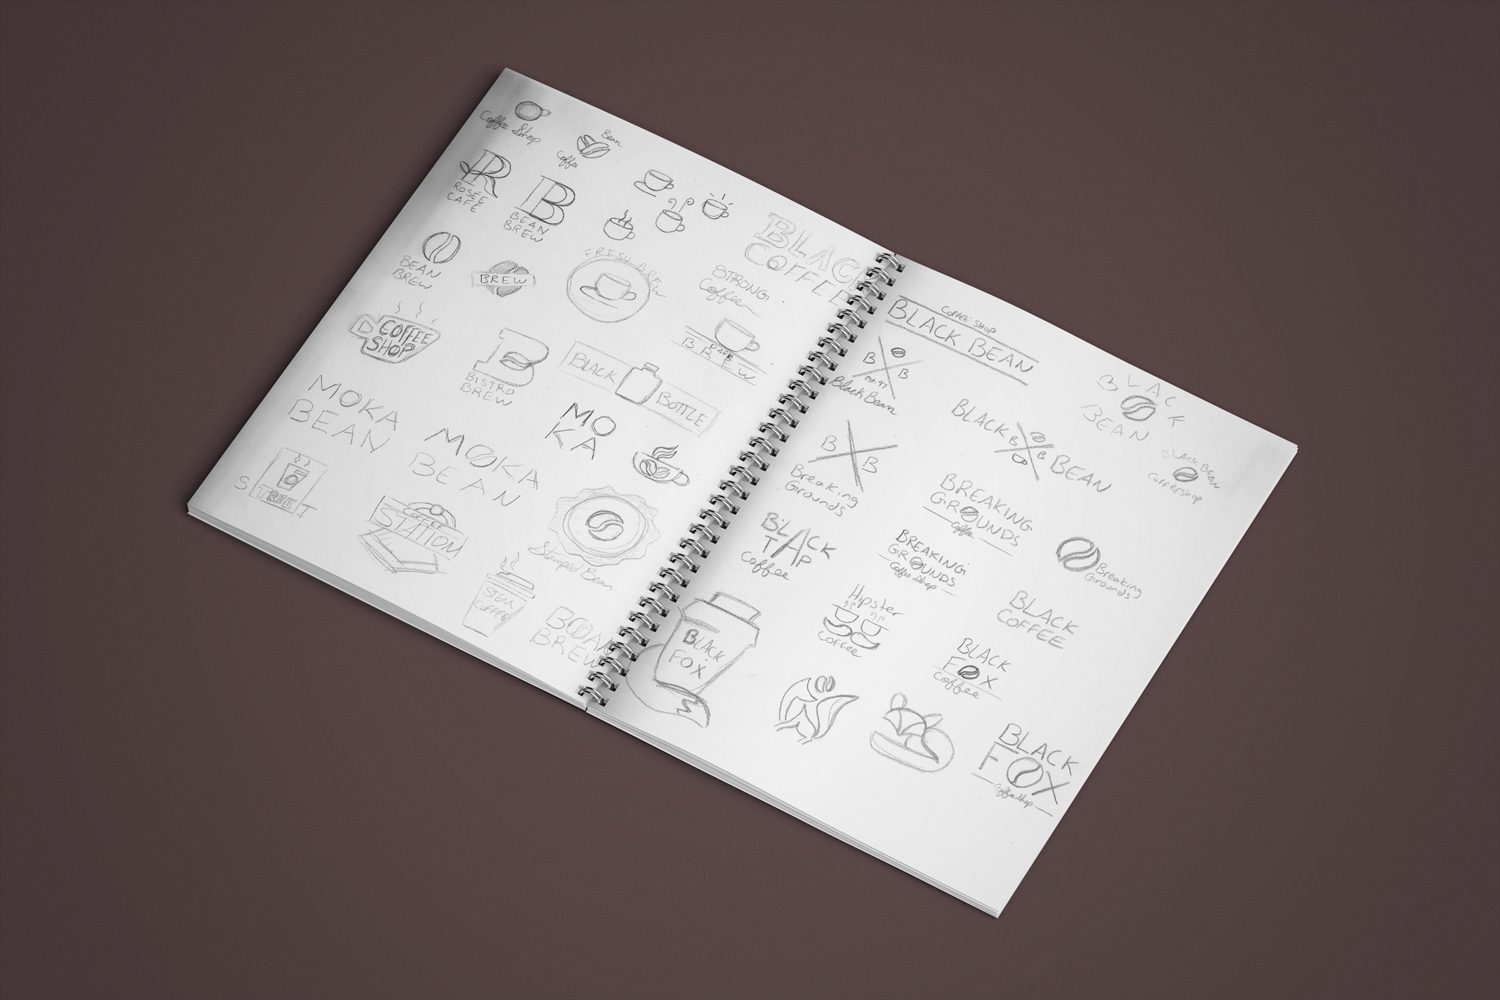 Coffee Shop
Bean
Coffee
R
ROSÉE
CAFÉ
B
BEAN
BREW
BEAN
BREW
BREW
FRESH BREW
BLACK
COFFEE
STRONG
Coffee
COFFEE
SHOP
B
BISTRO
BREW
DARK
BREW
BLACK BOTTLE
MOKA
BEAN
MOKA
BEAN
MO
KA
STREET
COFFEE
STATION
Simple Bean
COFFEE
BREW
COFFEE SHOP
BLACK BEAN
B B
Black Bean
BLACK B B BEAN
BLACK
BEAN
BLACK BEAN
COFFEESHOP
B B
Breaking
Grounds
BREAKING
GROUNDS
Coffee
BLACK
TAP
Coffee
BREAKING
GROUNDS
Coffee Shop
Breaking
Grounds
BLACK
FOX
Hipster
Coffee
BLACK
COFFEE
BLACK
FOX
Coffee
BLACK
FOX
Coffee Shop